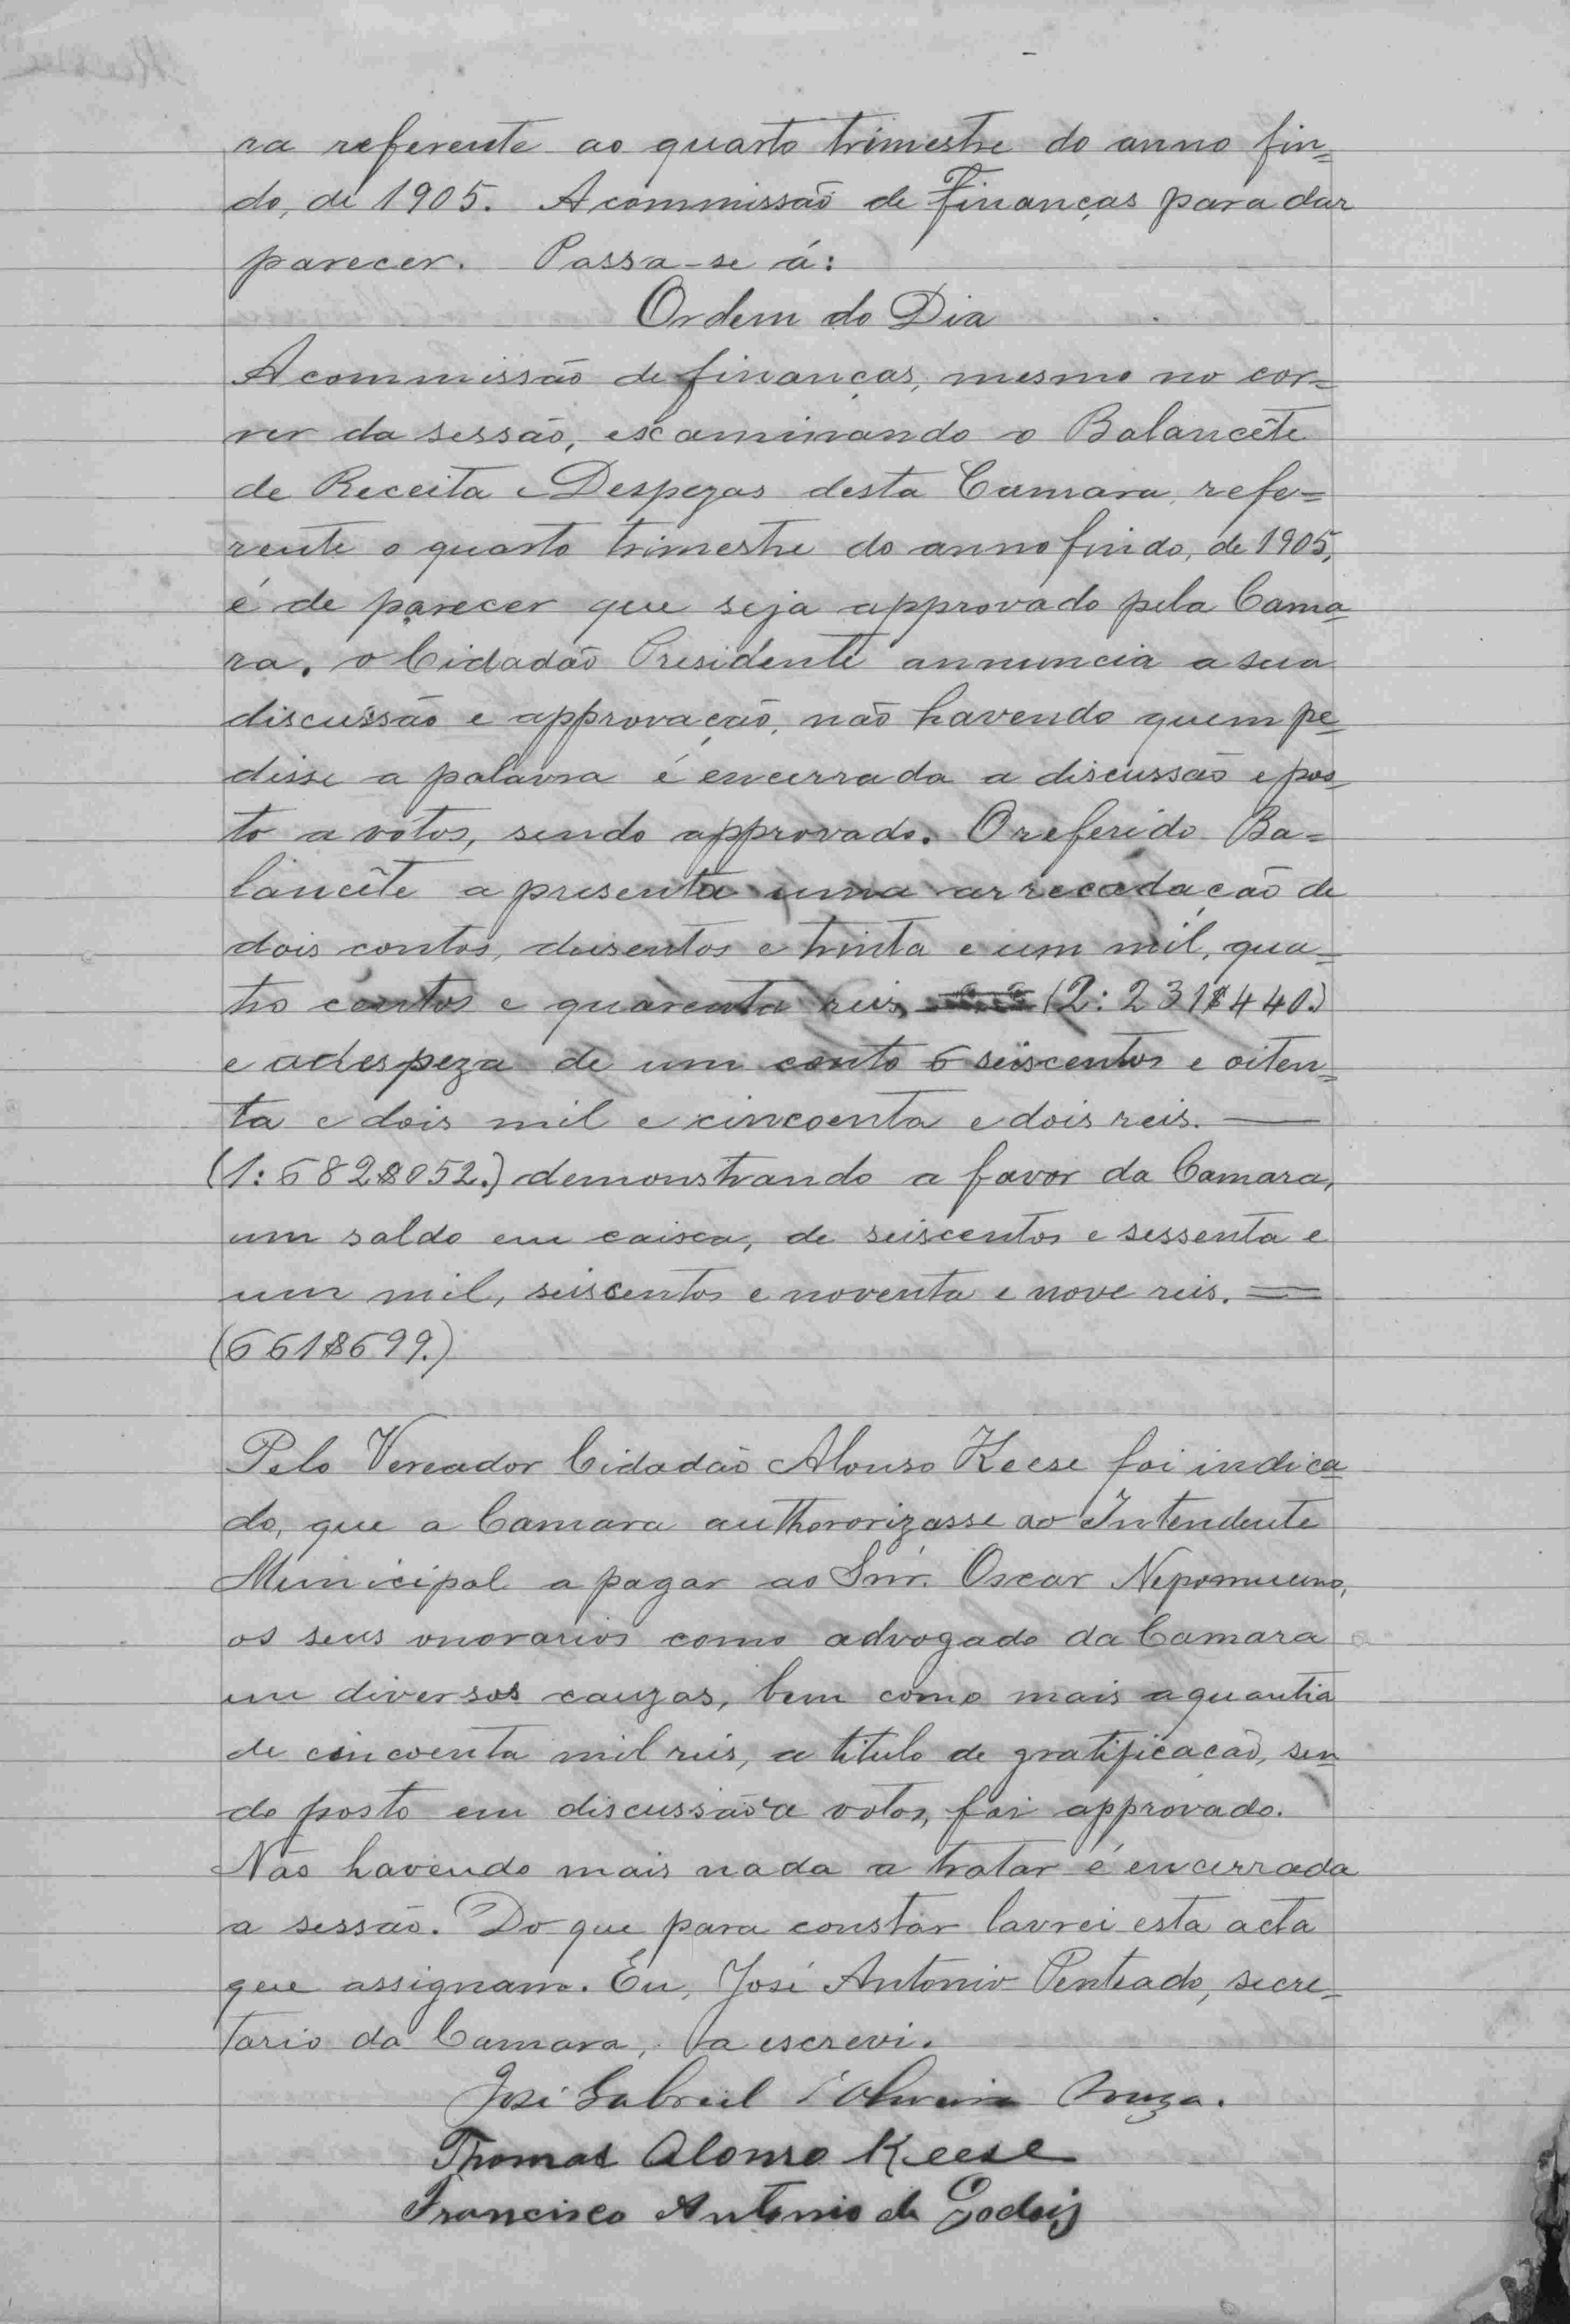 ra referente ao quarto trimestre do anno fin=
do, de 1905. A commissão de Finanças para dar
parecer. Passa-se á:
Ordem do Dia
A commissão de finanças, mesmo no cor=
rer da sessão, escaminando o Balancête
de Receita e Despezas desta Camara, refe=
rente o quarto trimestre do anno findo, de 1905,
é de parecer que seja approvado pela Cama=
ra. o Cidadão Presidente annuncia a sua
discussão e approvação, não havendo quem pe=
disse a palavra é encerrada a discussão e pos=
to a votos, sendo approvado. O referido Ba=
lancête apresenta uma arrecadação de
dois contos, dusentos e trinta e um mil, qua=
tro centos e quarenta reis, (2:231$440.)
e a despeza de um conto e seiscentos e oiten=
ta e dois mil e cincoenta e dois reis. —
(1:682$052.) demonstrando a favor da Camara,
um saldo em caisca, de seiscentos e sessenta e
um mil, seiscentos e noventa e nove reis. =
(661$699.)
Pelo Vereador Cidadão Alonso Keese foi indica=
do, que a Camara authororizasse ao Intendente
Municipal a pagar ao Snr. Oscar Nepomuceno,
os seus onorarios como advogado da Camara
em diversos cauzas, bem como mais a quantia
de cincoenta mil reis, a titulo de gratificacão, sen=
do posto em discussão e a votos, foi approvado.
Não havendo mais nada a tratar é encerrada
a sessão. Do que para constar lavrei esta acta
que assignam. Eu, José Antonio Penteado, secre=
tario da Camara, a escrevi.
José Gabriel d'Oliveira Souza.
Thomas Alonso Keese
Francisco Antonio de Godoij